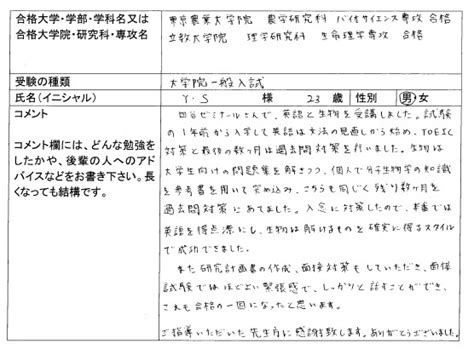 合格大学・学部・学科名又は
合格大学院・研究科・専攻名
東京農業大学院 農学研究科 バイオサイエンス専攻 合格
立教大学院 理学研究科 生命理学専攻 合格
受験の種類
大学院一般入試
氏名(イニシャル)
Y・S 様 23 歳 性別 男・女
コメント
コメント欄には、どんな勉強を
したかや、後輩の人へのアド
バイスなどをお書き下さい。長
くなっても結構です。
四谷ゼミナールさんで、英語と生物を受講しました。試験
の1年前から入学して英語は文法の見直しから始め、TOEIC
対策と最後の数ヶ月は過去問対策を行いました。生物は
大学生向けの問題集を解きつつ、個人で分子生物学の知識
を参考書を用いて定め込み、こちらも同じく残り数ヶ月を
過去問対策にあてました。入念に対策したので、本番では
英語を得点源にし、生物は解けるものを確実に得るスタイル
で成功できました。
また研究計画書の作成、面接対策もしていただき、面接
試験ではほどよい緊張感で、しっかりと話すことができ、
これも合格の一因になったと思います。
ご指導いただいた先生方に感謝致します。ありがとうございました。